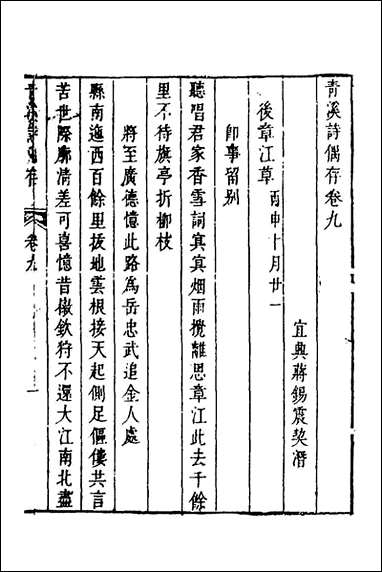 青溪詩偶存卷九
宜興蔣錫震契潛
後章江草丙申十月廿一
即事留别
聽唱君家香雪詞寘寘烟雨攪離思章江此去千餘
里不待旗亭折柳枝
將至廣德憶此路爲岳忠武追金人處
縣南迤西百餘里拔地雲根接天起側足傴僂共言
苦世際廓清差可喜憶昔徽欽狩不還大江南北盡
青溪詩偶存
卷九
一